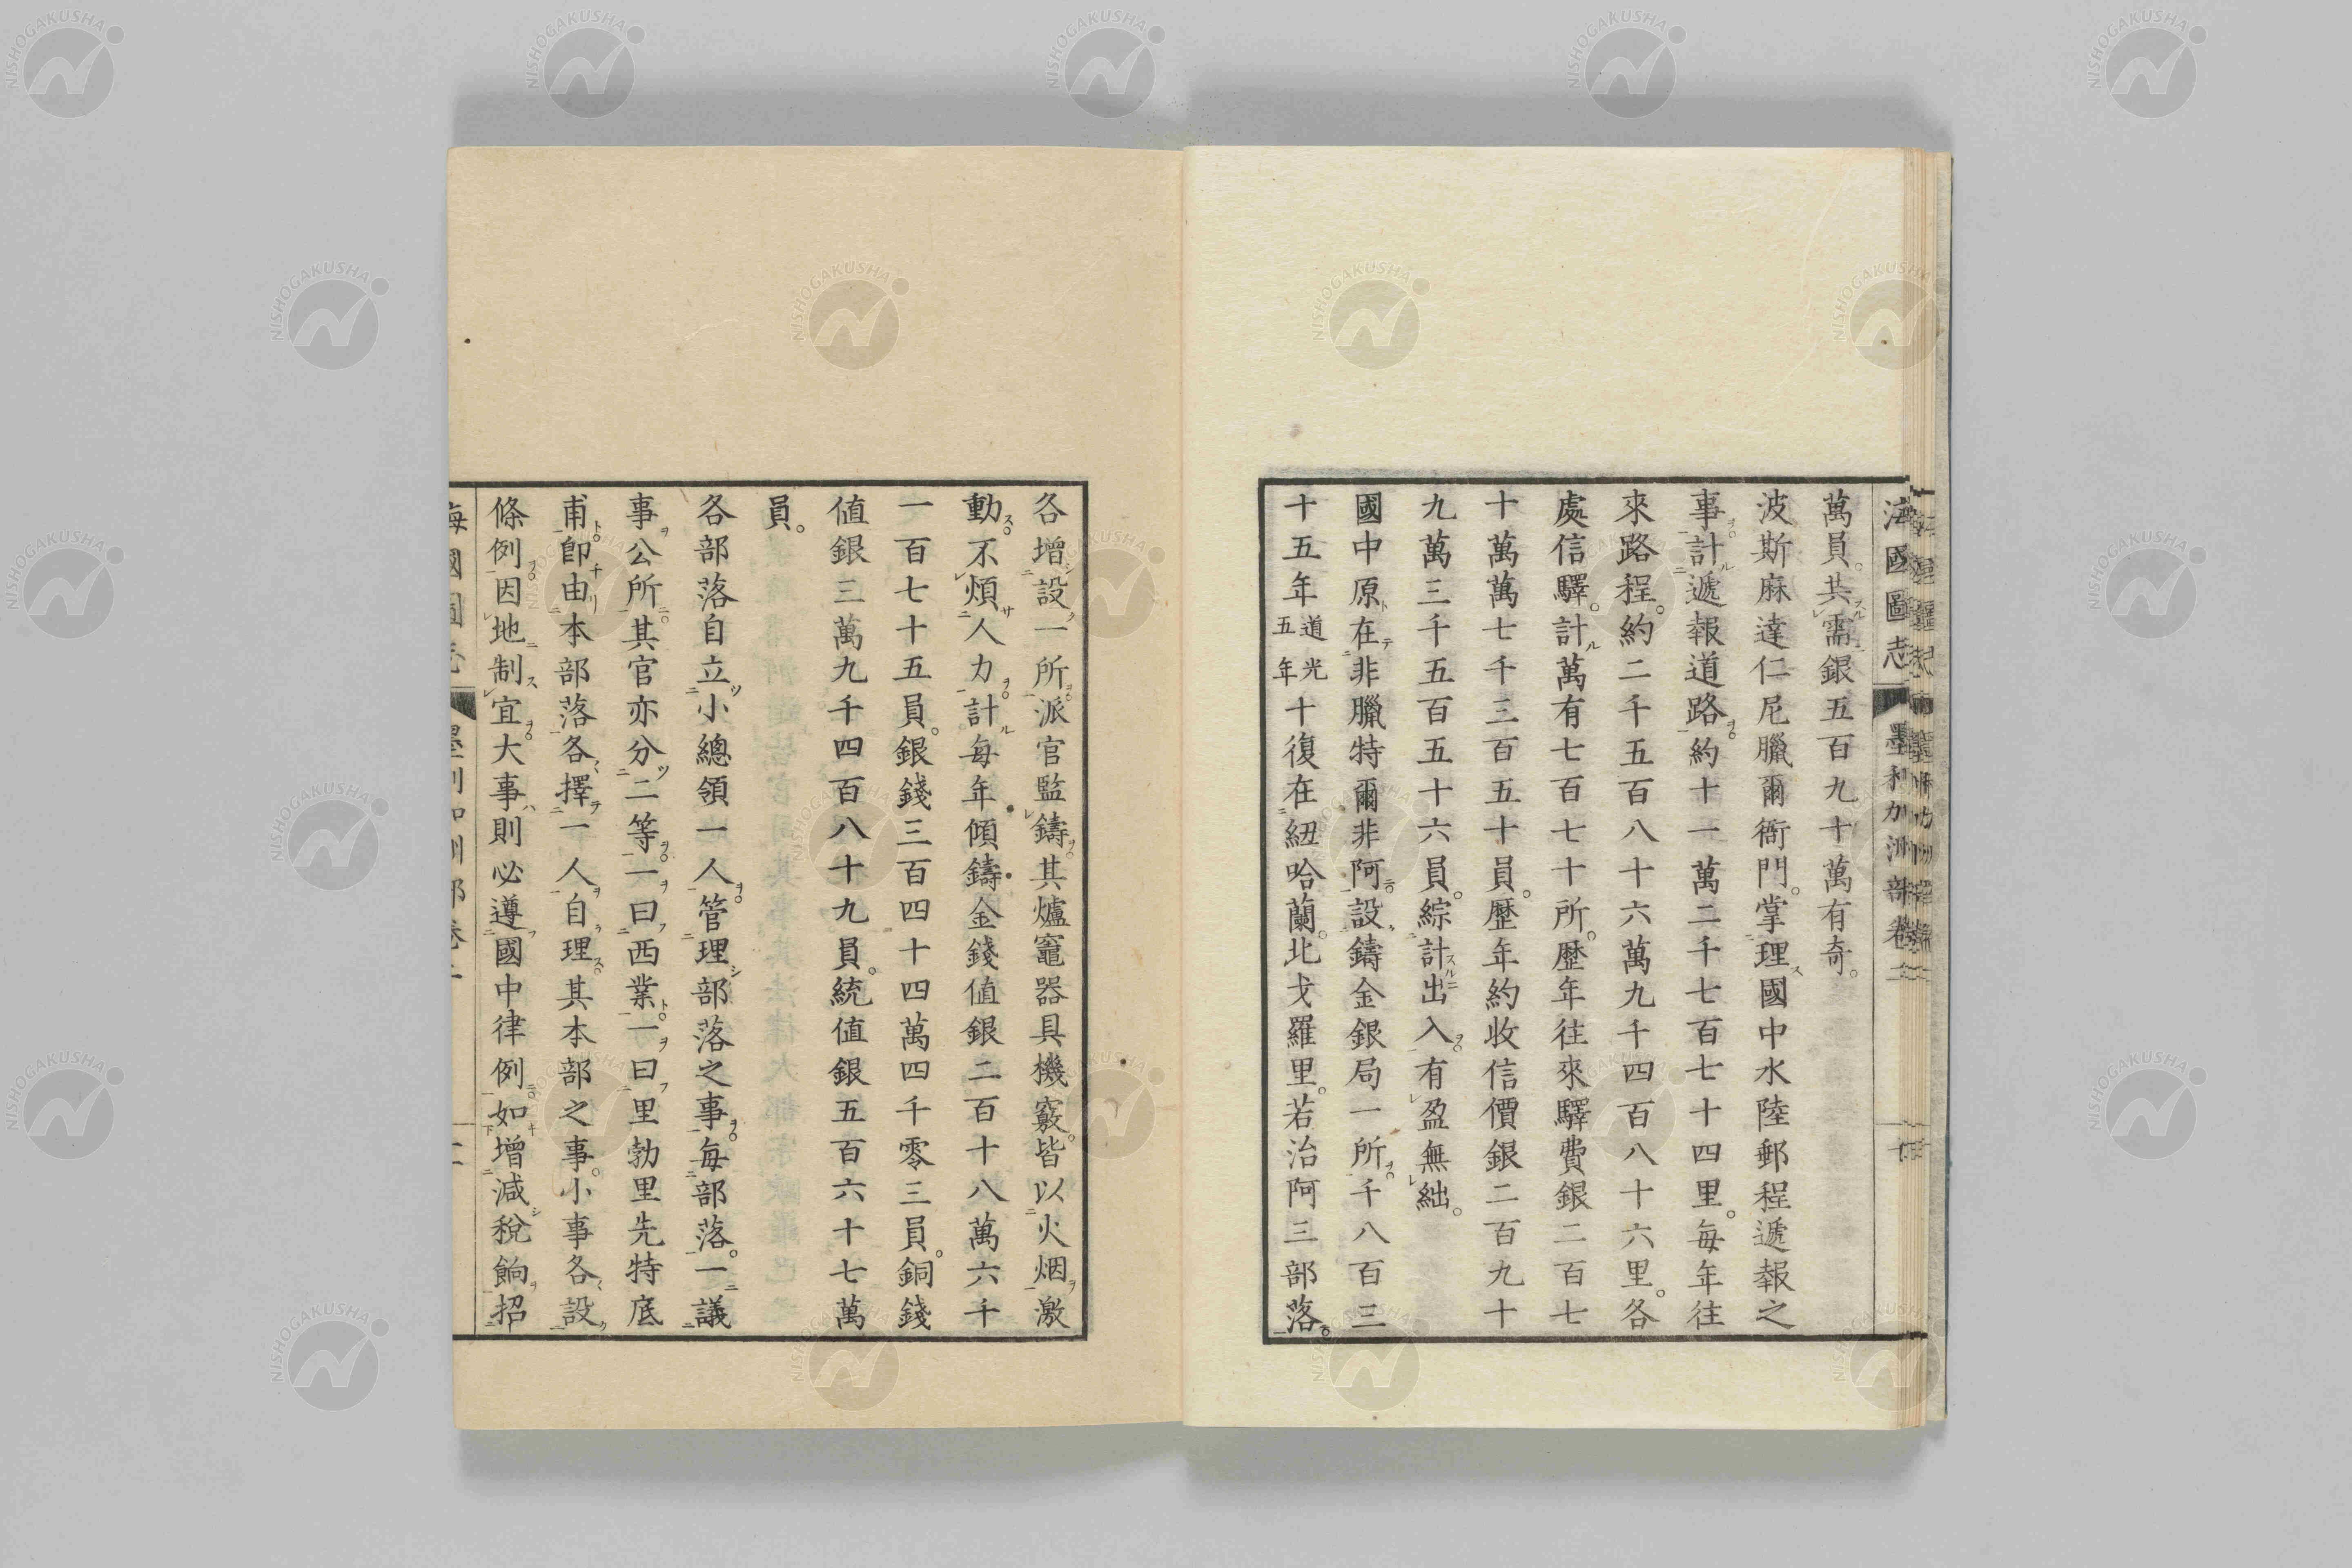 海國圖志 墨利加洲部卷二
萬員。共需銀五百九十萬有奇。
波斯麻達仁尼臘爾衙門。掌理國中水陸郵程遞報之
事計遞報道路約十一萬二千七百七十四里。每年往
來路程。約二千五百八十六萬九千四百八十六里。各
處信驛。計萬有七百七十所。歷年往來驛費銀二百七
十萬萬七千三百五十員。歷年約收信價銀二百九十
九萬三千五百五十六員。綜計出入有盈無絀。
國中原在非臘特爾非阿設鑄金銀局一所千八百三
十五年道光十五年復在紐哈蘭。北戈羅里。若治阿三部落。
各增設一所派官監鑄其爐竈器具機竅。皆以火烟激
動。不煩人力計每年傾鑄金錢値銀二百十八萬六千
一百七十五員。銀錢三百四十四萬四千零三員。銅錢
値銀三萬九千四百八十九員。統値銀五百六十七萬
員。
各部落自立小總領一人。管理部落之事每部落。一議
事公所其官亦分二等一曰西業一曰里勃里先特底
甫卽由本部落各擇一人自理其本部之事。小事各設
條例因地制宜大事則必遵國中律例如增減稅餉招
NISHOGAKUSHA